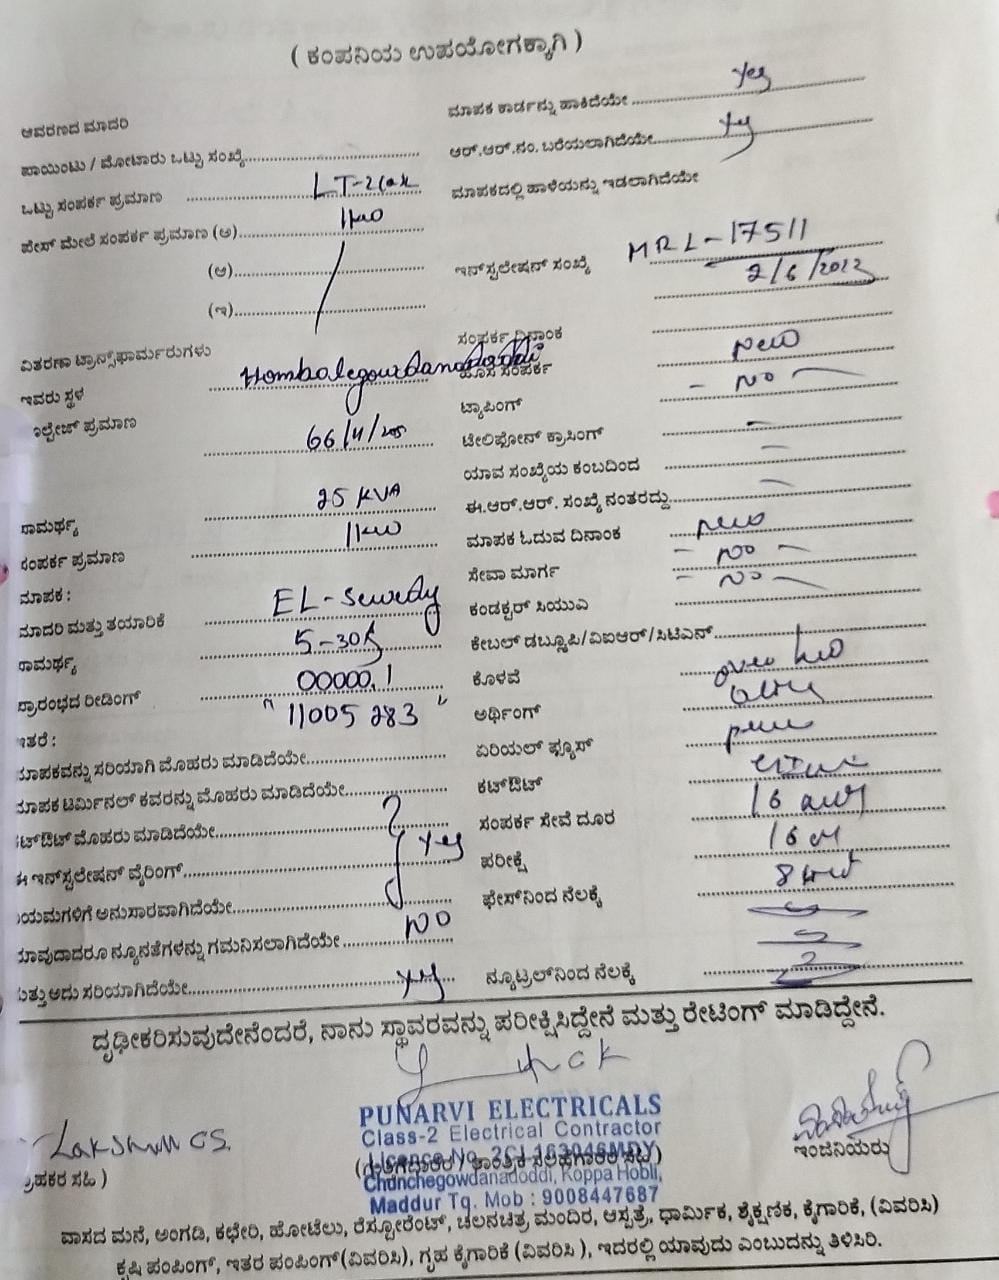 ( ಕಂಪನಿಯ ಉಪಯೋಗಕ್ಕಾಗಿ )
ಆವರಣದ ಮಾದರಿ
ಪಾಯಿಂಟು / ಮೋಟಾರು ಒಟ್ಟು ಸಂಖ್ಯೆ
ಒಟ್ಟು ಸಂಪರ್ಕ ಪ್ರಮಾಣ LT-2
ಫೇಸ್ ಮೇಲೆ ಸಂಪರ್ಕ ಪ್ರಮಾಣ (ಅ) 1kw
(ಆ)
(ಇ)
ವಿತರಣಾ ಟ್ರಾನ್ಸ್‌ಫಾರ್ಮರುಗಳು
ಇವರು ಸ್ಥಳ Hombalegowdanadoddi
ೂಲ್ಟೇಜ್ ಪ್ರಮಾಣ 66/11/
ಸಾಮರ್ಥ್ಯ 25 KVA
ಸಂಪರ್ಕ ಪ್ರಮಾಣ 1kw
ಮಾಪಕ :
ಮಾದರಿ ಮತ್ತು ತಯಾರಿಕೆ EL-Sewedy
ಸಾಮರ್ಥ್ಯ 5-30
ಪ್ರಾರಂಭದ ರೀಡಿಂಗ್ 00000.1
ಇತರೆ : " 11005283 "
ಮಾಪಕವನ್ನು ಸರಿಯಾಗಿ ಮೊಹರು ಮಾಡಿದೆಯೇ
ಮಾಪಕ ಟರ್ಮಿನಲ್ ಕವರನ್ನು ಮೊಹರು ಮಾಡಿದೆಯೇ
ಕಟ್‌ಔಟ್ ಮೊಹರು ಮಾಡಿದೆಯೇ
ಈ ಇನ್‌ಸ್ಟಲೇಷನ್ ವೈರಿಂಗ್ yes
ಯಮಗಳಿಗೆ ಅನುಸಾರವಾಗಿದೆಯೇ
ಯಾವುದಾದರೂ ನ್ಯೂನತೆಗಳನ್ನು ಗಮನಿಸಲಾಗಿದೆಯೇ NO
ಮತ್ತು ಅದು ಸರಿಯಾಗಿದೆಯೇ yes
ಮಾಪಕ ಕಾರ್ಡನ್ನು ಹಾಕಿದೆಯೇ yes
ಆರ್.ಆರ್.ನಂ. ಬರೆಯಲಾಗಿದೆಯೇ yes
ಮಾಪಕದಲ್ಲಿ ಹಾಳೆಯನ್ನು ಇಡಲಾಗಿದೆಯೇ
ಇನ್‌ಸ್ಟಲೇಷನ್ ಸಂಖ್ಯೆ MRL-17511
2/6/2022
ಸಂಪರ್ಕ ದಿನಾಂಕ
ಹೊಸ ಸಂಪರ್ಕ new
ಟ್ಯಾಪಿಂಗ್ - NO -
ಟೇಲಿಫೋನ್ ಕ್ರಾಸಿಂಗ್ -
ಯಾವ ಸಂಖ್ಯೆಯ ಕಂಬದಿಂದ -
ಈ.ಆರ್.ಆರ್. ಸಂಖ್ಯೆ ನಂತರದ್ದು -
ಮಾಪಕ ಓದುವ ದಿನಾಂಕ new
ಸೇವಾ ಮಾರ್ಗ - NO -
ಕಂಡಕ್ಟರ್ ಸಿಯುಎ - NO -
ಕೇಬಲ್ ಡಬ್ಲ್ಯೂಪಿ/ವಿಐಆರ್/ಸಿಟಿಎನ್
ಕೊಳವೆ
ಅರ್ಥಿಂಗ್
ಏರಿಯಲ್ ಫ್ಯೂಸ್
ಕಟ್‌ಔಟ್
ಸಂಪರ್ಕ ಸೇವೆ ದೂರ 16
ಪರೀಕ್ಷೆ 16
ಫೇಸ್‌ನಿಂದ ನೆಲಕ್ಕೆ 8
ನ್ಯೂಟ್ರಲ್‌ನಿಂದ ನೆಲಕ್ಕೆ
ದೃಢೀಕರಿಸುವುದೇನೆಂದರೆ, ನಾನು ಸ್ಥಾವರವನ್ನು ಪರೀಕ್ಷಿಸಿದ್ದೇನೆ ಮತ್ತು ರೇಟಿಂಗ್ ಮಾಡಿದ್ದೇನೆ.
PUNARVI ELECTRICALS
Class-2 Electrical Contractor
Licence No. 2CL163046MDY
(ಗುತ್ತಿಗೆದಾರರ / ತಾಂತ್ರಿಕ ಸಲಹೆಗಾರರ ಸಹಿ)
Chunchegowdanadoddi, Koppa Hobli,
Maddur Tq. Mob : 9008447687
Lakshmi CS.
್ರಾಹಕರ ಸಹಿ )
ಇಂಜಿನಿಯರು
ವಾಸದ ಮನೆ, ಅಂಗಡಿ, ಕಛೇರಿ, ಹೋಟೆಲು, ರೆಸ್ಟೋರೆಂಟ್, ಚಲನಚಿತ್ರ ಮಂದಿರ, ಆಸ್ಪತ್ರೆ, ಧಾರ್ಮಿಕ, ಶೈಕ್ಷಣಿಕ, ಕೈಗಾರಿಕೆ, (ವಿವರಿಸಿ)
ಕೃಷಿ ಪಂಪಿಂಗ್, ಇತರ ಪಂಪಿಂಗ್(ವಿವರಿಸಿ), ಗೃಹ ಕೈಗಾರಿಕೆ (ವಿವರಿಸಿ ), ಇದರಲ್ಲಿ ಯಾವುದು ಎಂಬುದನ್ನು ತಿಳಿಸಿರಿ.